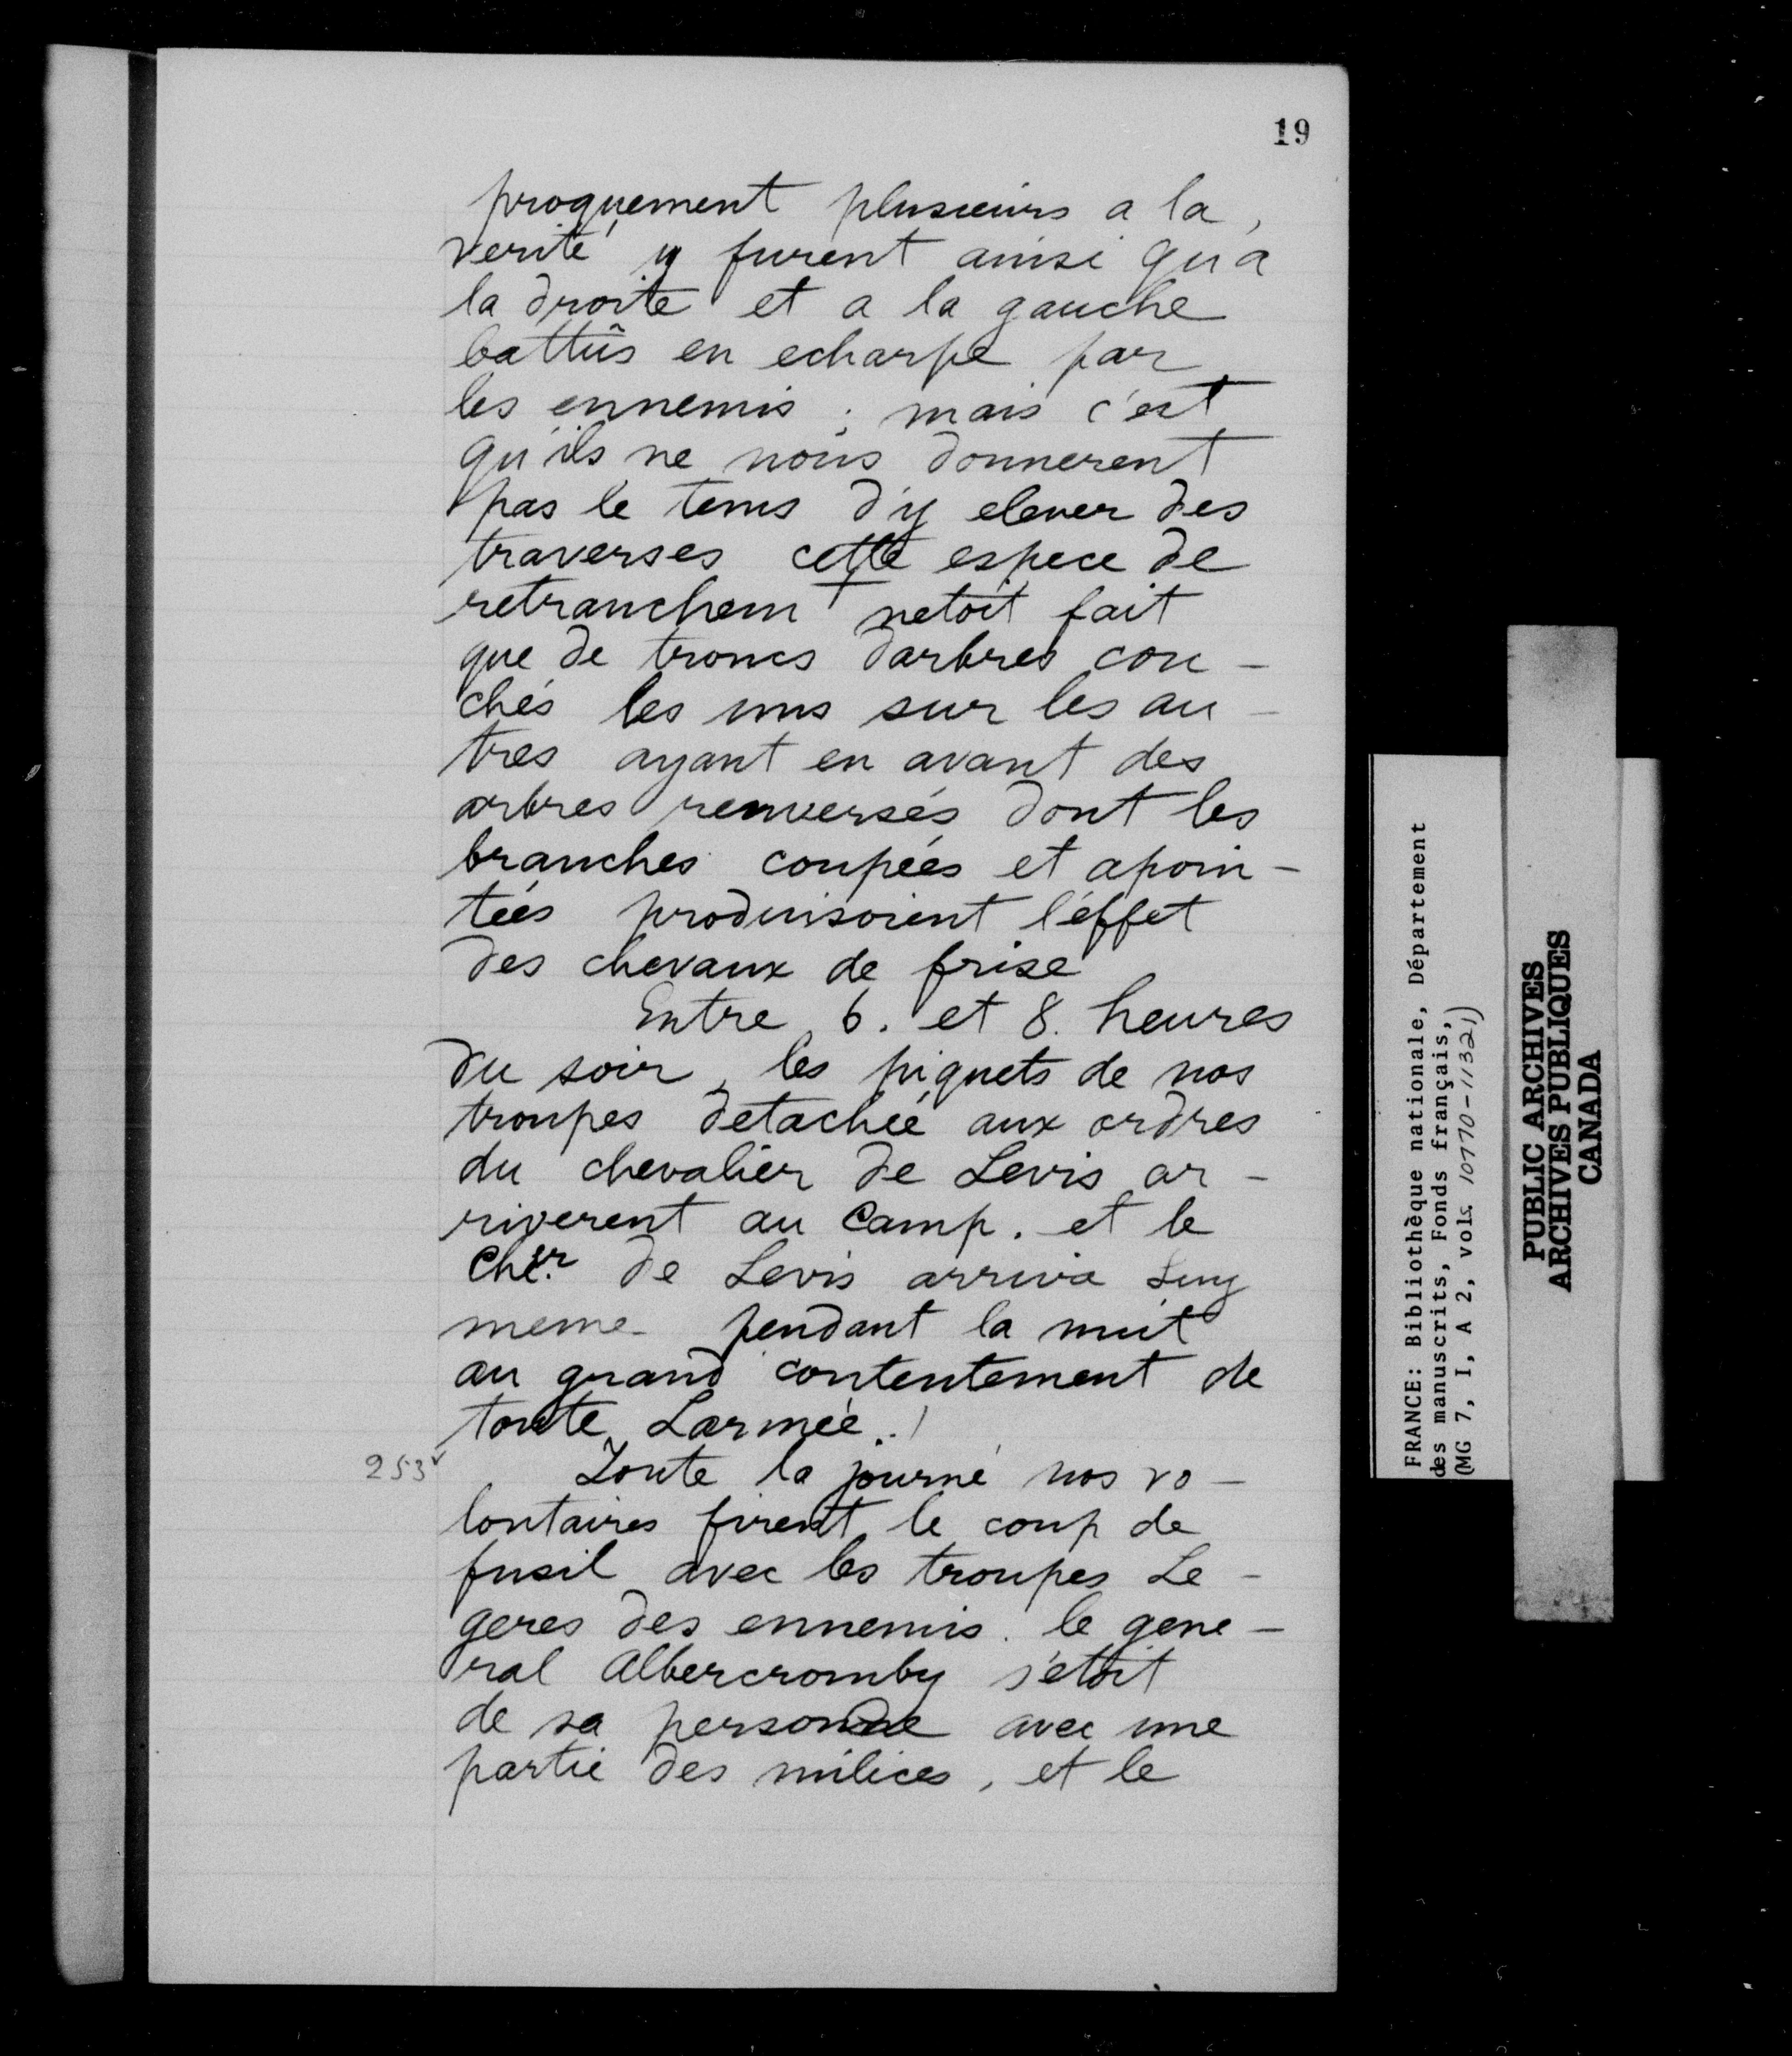 19
proquement plusieurs a la
verité y furent ainsi qu'a
la droite et a la gauche
battûs en echarpe par
les ennemis ; mais c'est
qu'ils ne nous donnerent
pas le tems d'y elever des
traverses cette espece de
retranchemt netoit fait
que de troncs d'arbres cou-
chés les uns sur les au-
tres ayant en avant des
arbres renversés dont les
branches coupées et apoin-
tées produisoient l'éffet
des chevaux de frise
Entre 6. et 8. heures
du soir, les piquets de nos
troupes detachée aux ordres
du chevalier de Levis ar-
riverent au Camp. et le
Cher. de Levis arriva Luy
meme pendant la nuit
au grand contentement de
toute Larmée.
253v
Toute la journé nos vo-
lontaires firent le coup de
fusil avec les troupes Le-
geres des ennemis. le gene-
ral Albercromby s'étoit
de sa personne avec une
partie des milices, et le
FRANCE: Bibliothèque nationale, Département
des manuscrits, Fonds français,
(MG 7, I, A 2, vols. 10770-11321)
PUBLIC ARCHIVES
ARCHIVES PUBLIQUES
CANADA